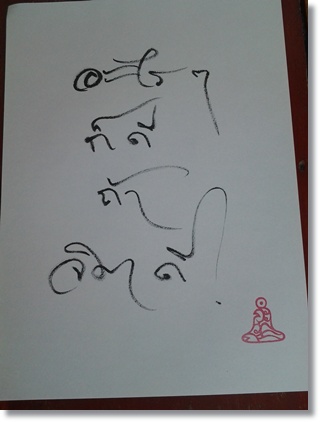 อะไรๆ
ก็ดี
ถ้า
จิตดี!